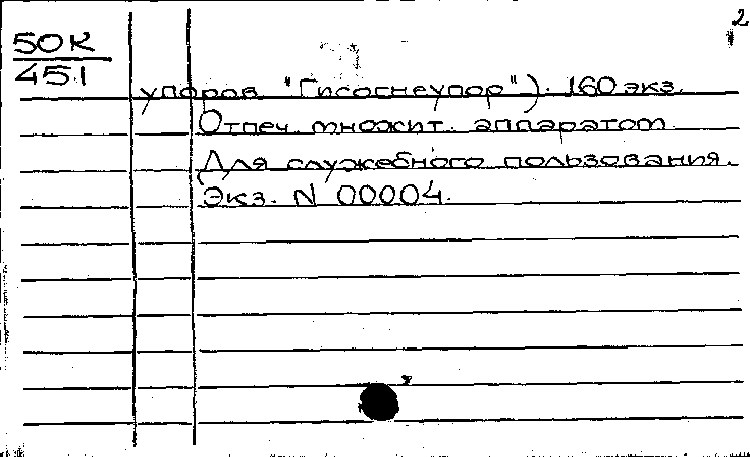 2
50К
451
упоров "Гипсогнеупор"). 160 экз.
Отпеч. множит. аппаратом
Для служебного пользования.
Экз. N 00004.